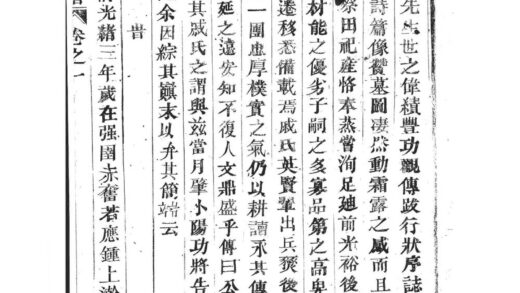 先生世之偉績豐功觀傳跋行狀序誌
詩篇像贊墓圖凄然動霜露之感而且
祭田祀產恪奉蒸嘗洵足廸前光裕後
材能之優劣子嗣之多寡品第之高卑
遷移悉備載焉戚氏英賢輩出兵燹後
一團忠厚樸實之氣仍以耕讀永其傳
延之遠安知不復人文鼎盛乎傳曰公
其戚氏之謂與茲當月肇小陽功將告
余因綜其巔末以弁其簡端云
旹
光緒三年歲在强圉赤奮若應鍾上澣
卷之一